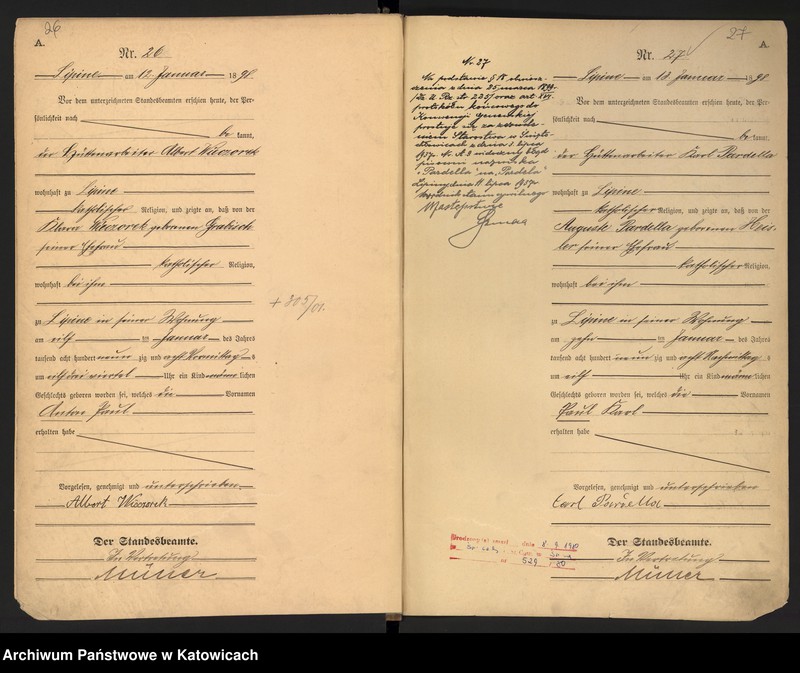 26
A.
Nr. 26
Lipine am 12 Januar 1898
Vor dem unterzeichneten Standesbeamten erschien heute, der Per-
sönlichkeit nach
be kannt,
der Hüttenarbeiter Albert Wieczorek
wohnhaft zu Lipine
katholischer Religion, und zeigte an, daß von der
Klara Wieczorek geborenen
seiner Ehefrau
katholischer Religion,
wohnhaft bei ihm
zu Lipine in seiner Wohnung
am elf ten Januar des Jahres
tausend acht hundert neun zig und acht Vormittags
um elf drei viertel Uhr ein Kind männlichen
Geschlechts geboren worden sei, welches die Vornamen
Anton Paul
erhalten habe
Vorgelesen, genehmigt und unterschrieben
Albert Wieczorek
Der Standesbeamte.
In Vertretung
Müller
+ 305/01.
27
A.
Nr. 27
Na podstawie § 18
z dnia 25 marca
oraz art.
protokołu końcowego do
Konwencji Genewskiej
prostuje się za
Starostwa w Święto-
chłowicach z dnia 1 lipca
1937r.
pisownię nazwiska
"Pardella" na "Pardela"
Lipiny dnia 11 lipca 1937r
Urzędnik stanu cywilnego
W zastępstwie
Nr. 27
Lipine am 13 Januar 1898
Vor dem unterzeichneten Standesbeamten erschien heute, der Per-
sönlichkeit nach
be kannt,
der Hüttenarbeiter Karl Pardella
wohnhaft zu Lipine
katholischer Religion, und zeigte an, daß von der
Auguste Pardella geborenen Heis-
ler seiner Ehefrau
katholischer Religion,
wohnhaft bei ihm
zu Lipine in seiner Wohnung
am zehn ten Januar des Jahres
tausend acht hundert neun zig und acht Nachmittags
um elf Uhr ein Kind männlichen
Geschlechts geboren worden sei, welches die Vornamen
Paul Karl
erhalten habe
Vorgelesen, genehmigt und unterschrieben
Carl Pardella
Der Standesbeamte.
In Vertretung
Müller
529
Archiwum Państwowe w Katowicach